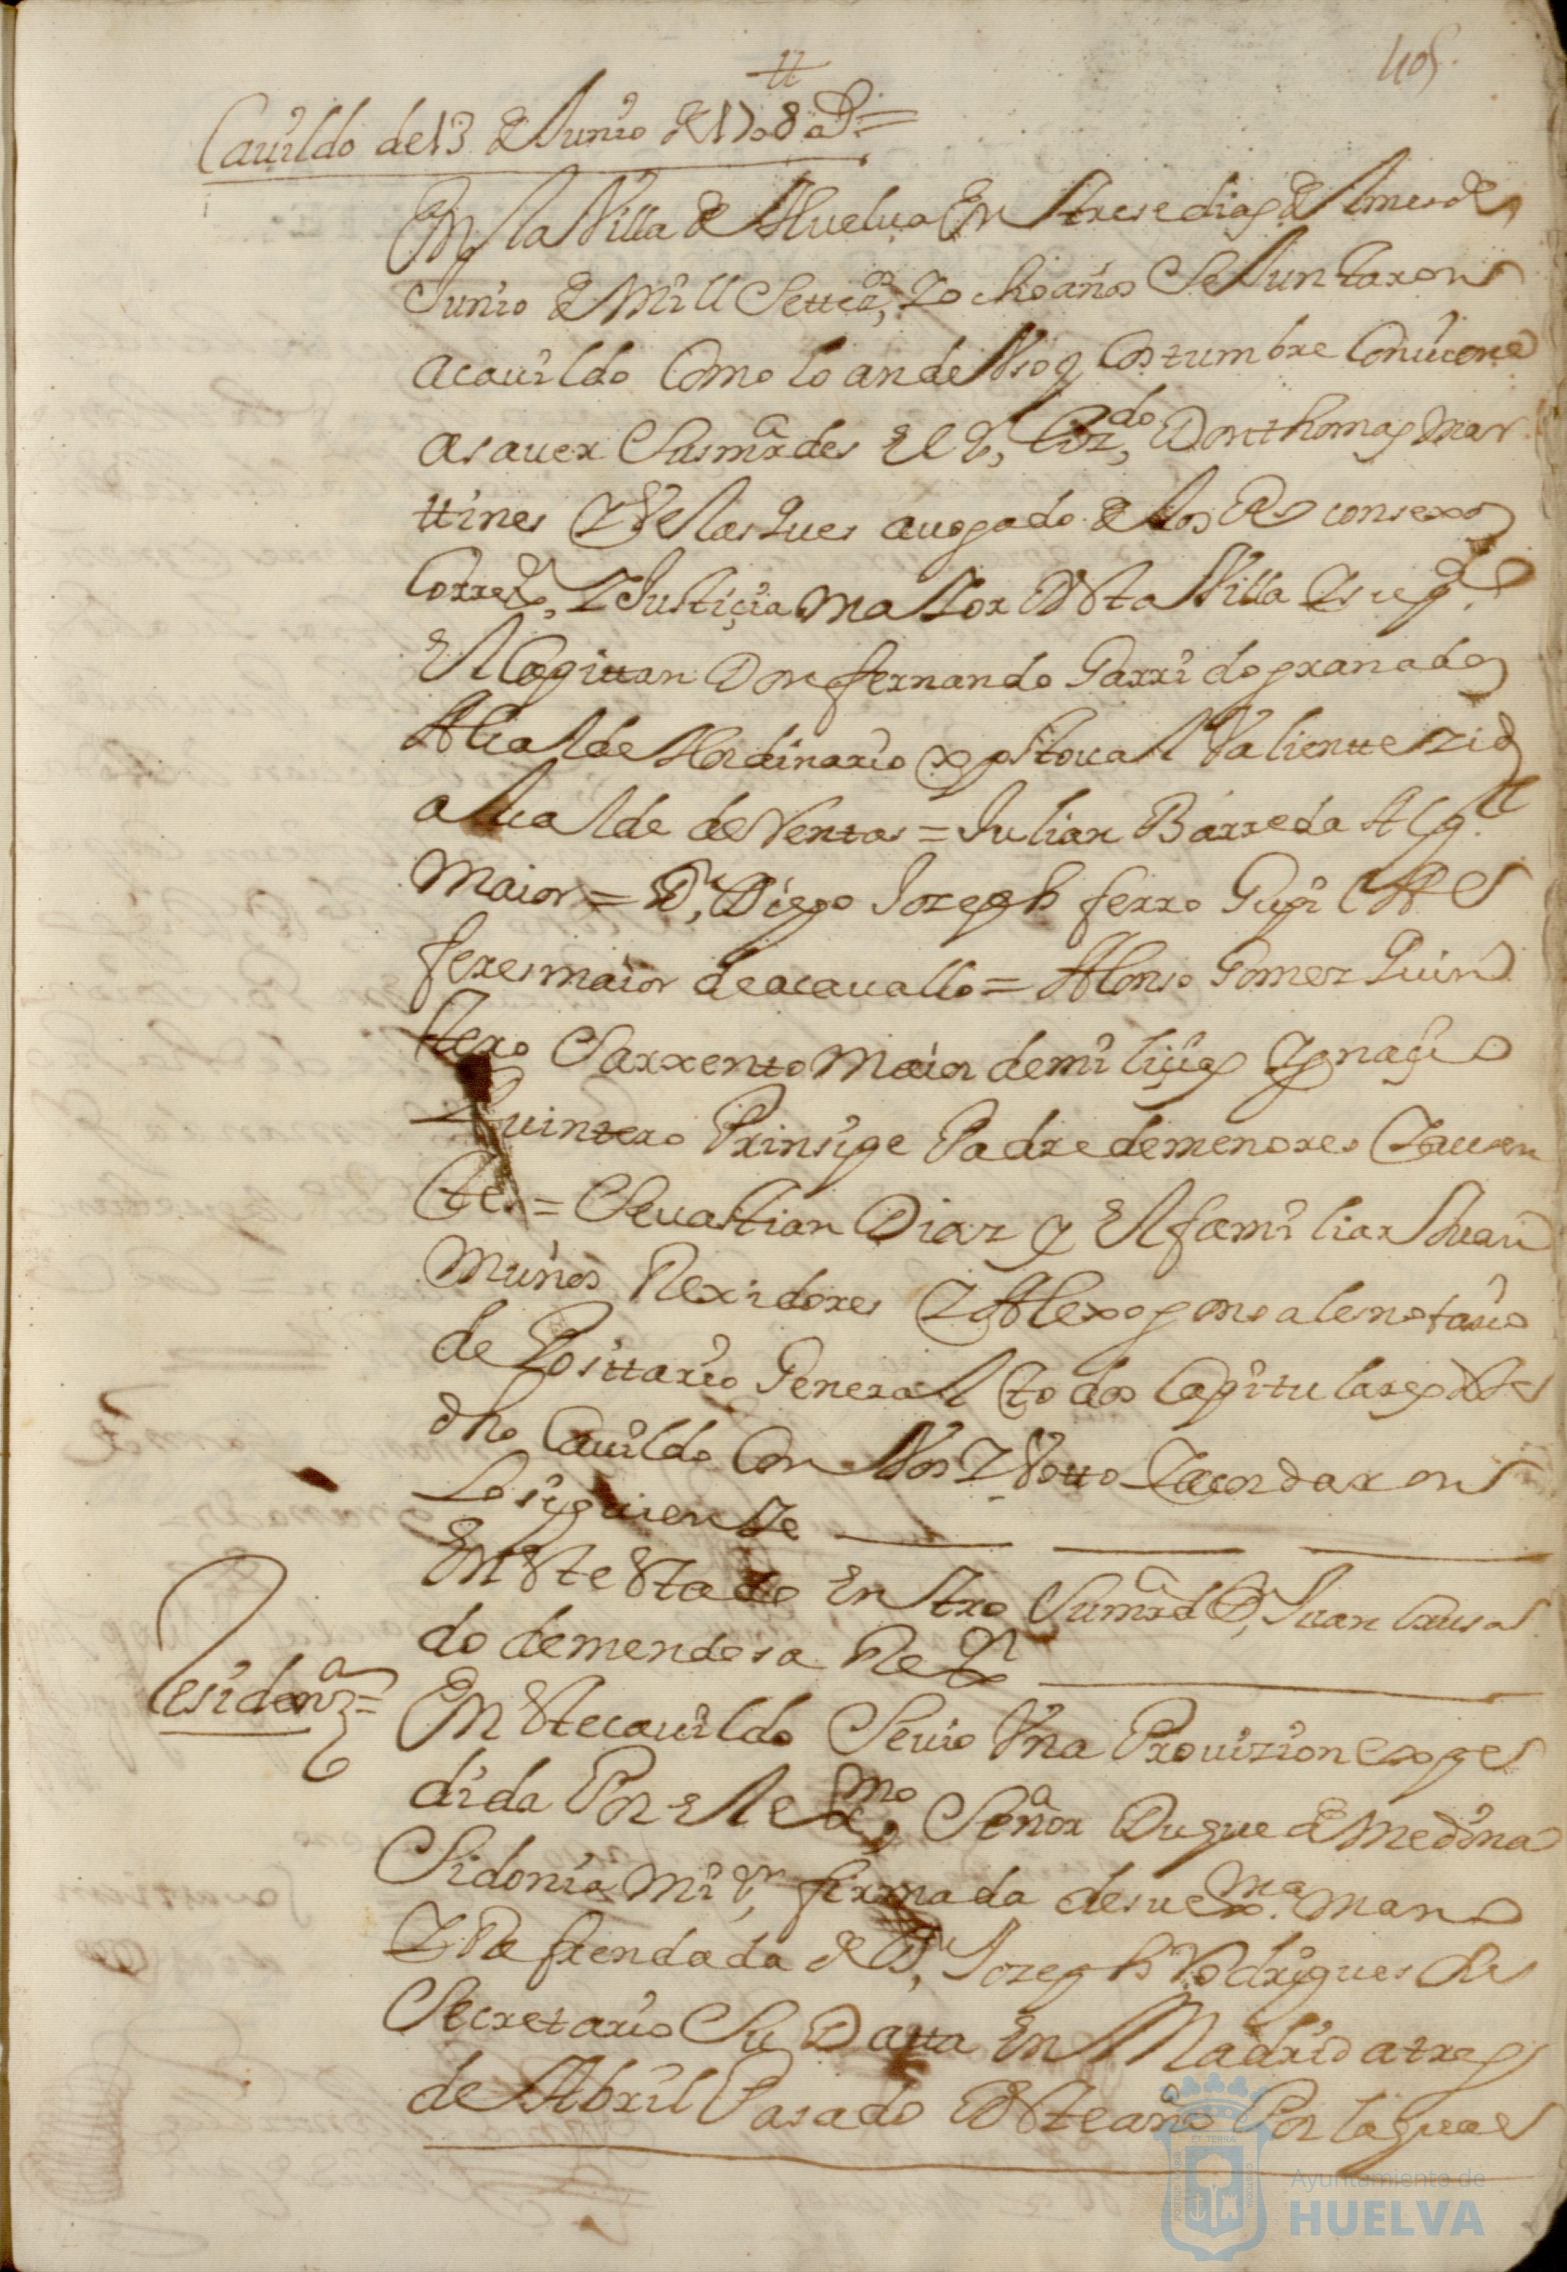 405.
tt
Cauildo de 13 de Junio de 1708 as=
En la Villa de Huelua En trese dias del mes de
Junio de Mill Settecos, Y ocho años Se Juntaron
a cauildo Como lo an de Vso y Costumbre Conuiene
a sauer Susmrdes El Sr, Lizdo, Don thomas Mar
ttines Y Velasques auogado de los Rs consexos
Corredor, Y Justicia maior Desta Villa
El Capittan Don fernando Garrido granados
Alcalde Hordinario xptoual Valientte
alcalde de Ventas = Julian Barreda Algl
Maior = Dn, Diego Joseph ferro Gupil Al
feres maior de a cauallo = Alonso Gomez Quin
tero Sarxento Maior de milicias Ygnacio
Quintero Prinsipe Padre de menores Y ausen
tes = Seuastian Diaz y El familiar Juan
Muños Rexidores Y Alexo gonsales notario
de Posittario General todos Capitulares Deste
dho Cauildo Con Vos Y Votto Y acordaron
Lo siguiente
En Este Estado Entro Sumrd Dn, Juan Quesa
do de mendosa Rexor
Residenza=
En Este cauildo Se uio Vna Prouizion expe
dida Por el exmo, Señor Duque de Medina
Sidonia Mi Sr, firmada de su exma. mano
Y Refrendada de Dn, Joseph Rodrigues Su
Secretario Su Datta En Madrid a tres
de Abril Pasado Deste año Por la qual
ET TERRA
Ayuntamiento de
HUELVA